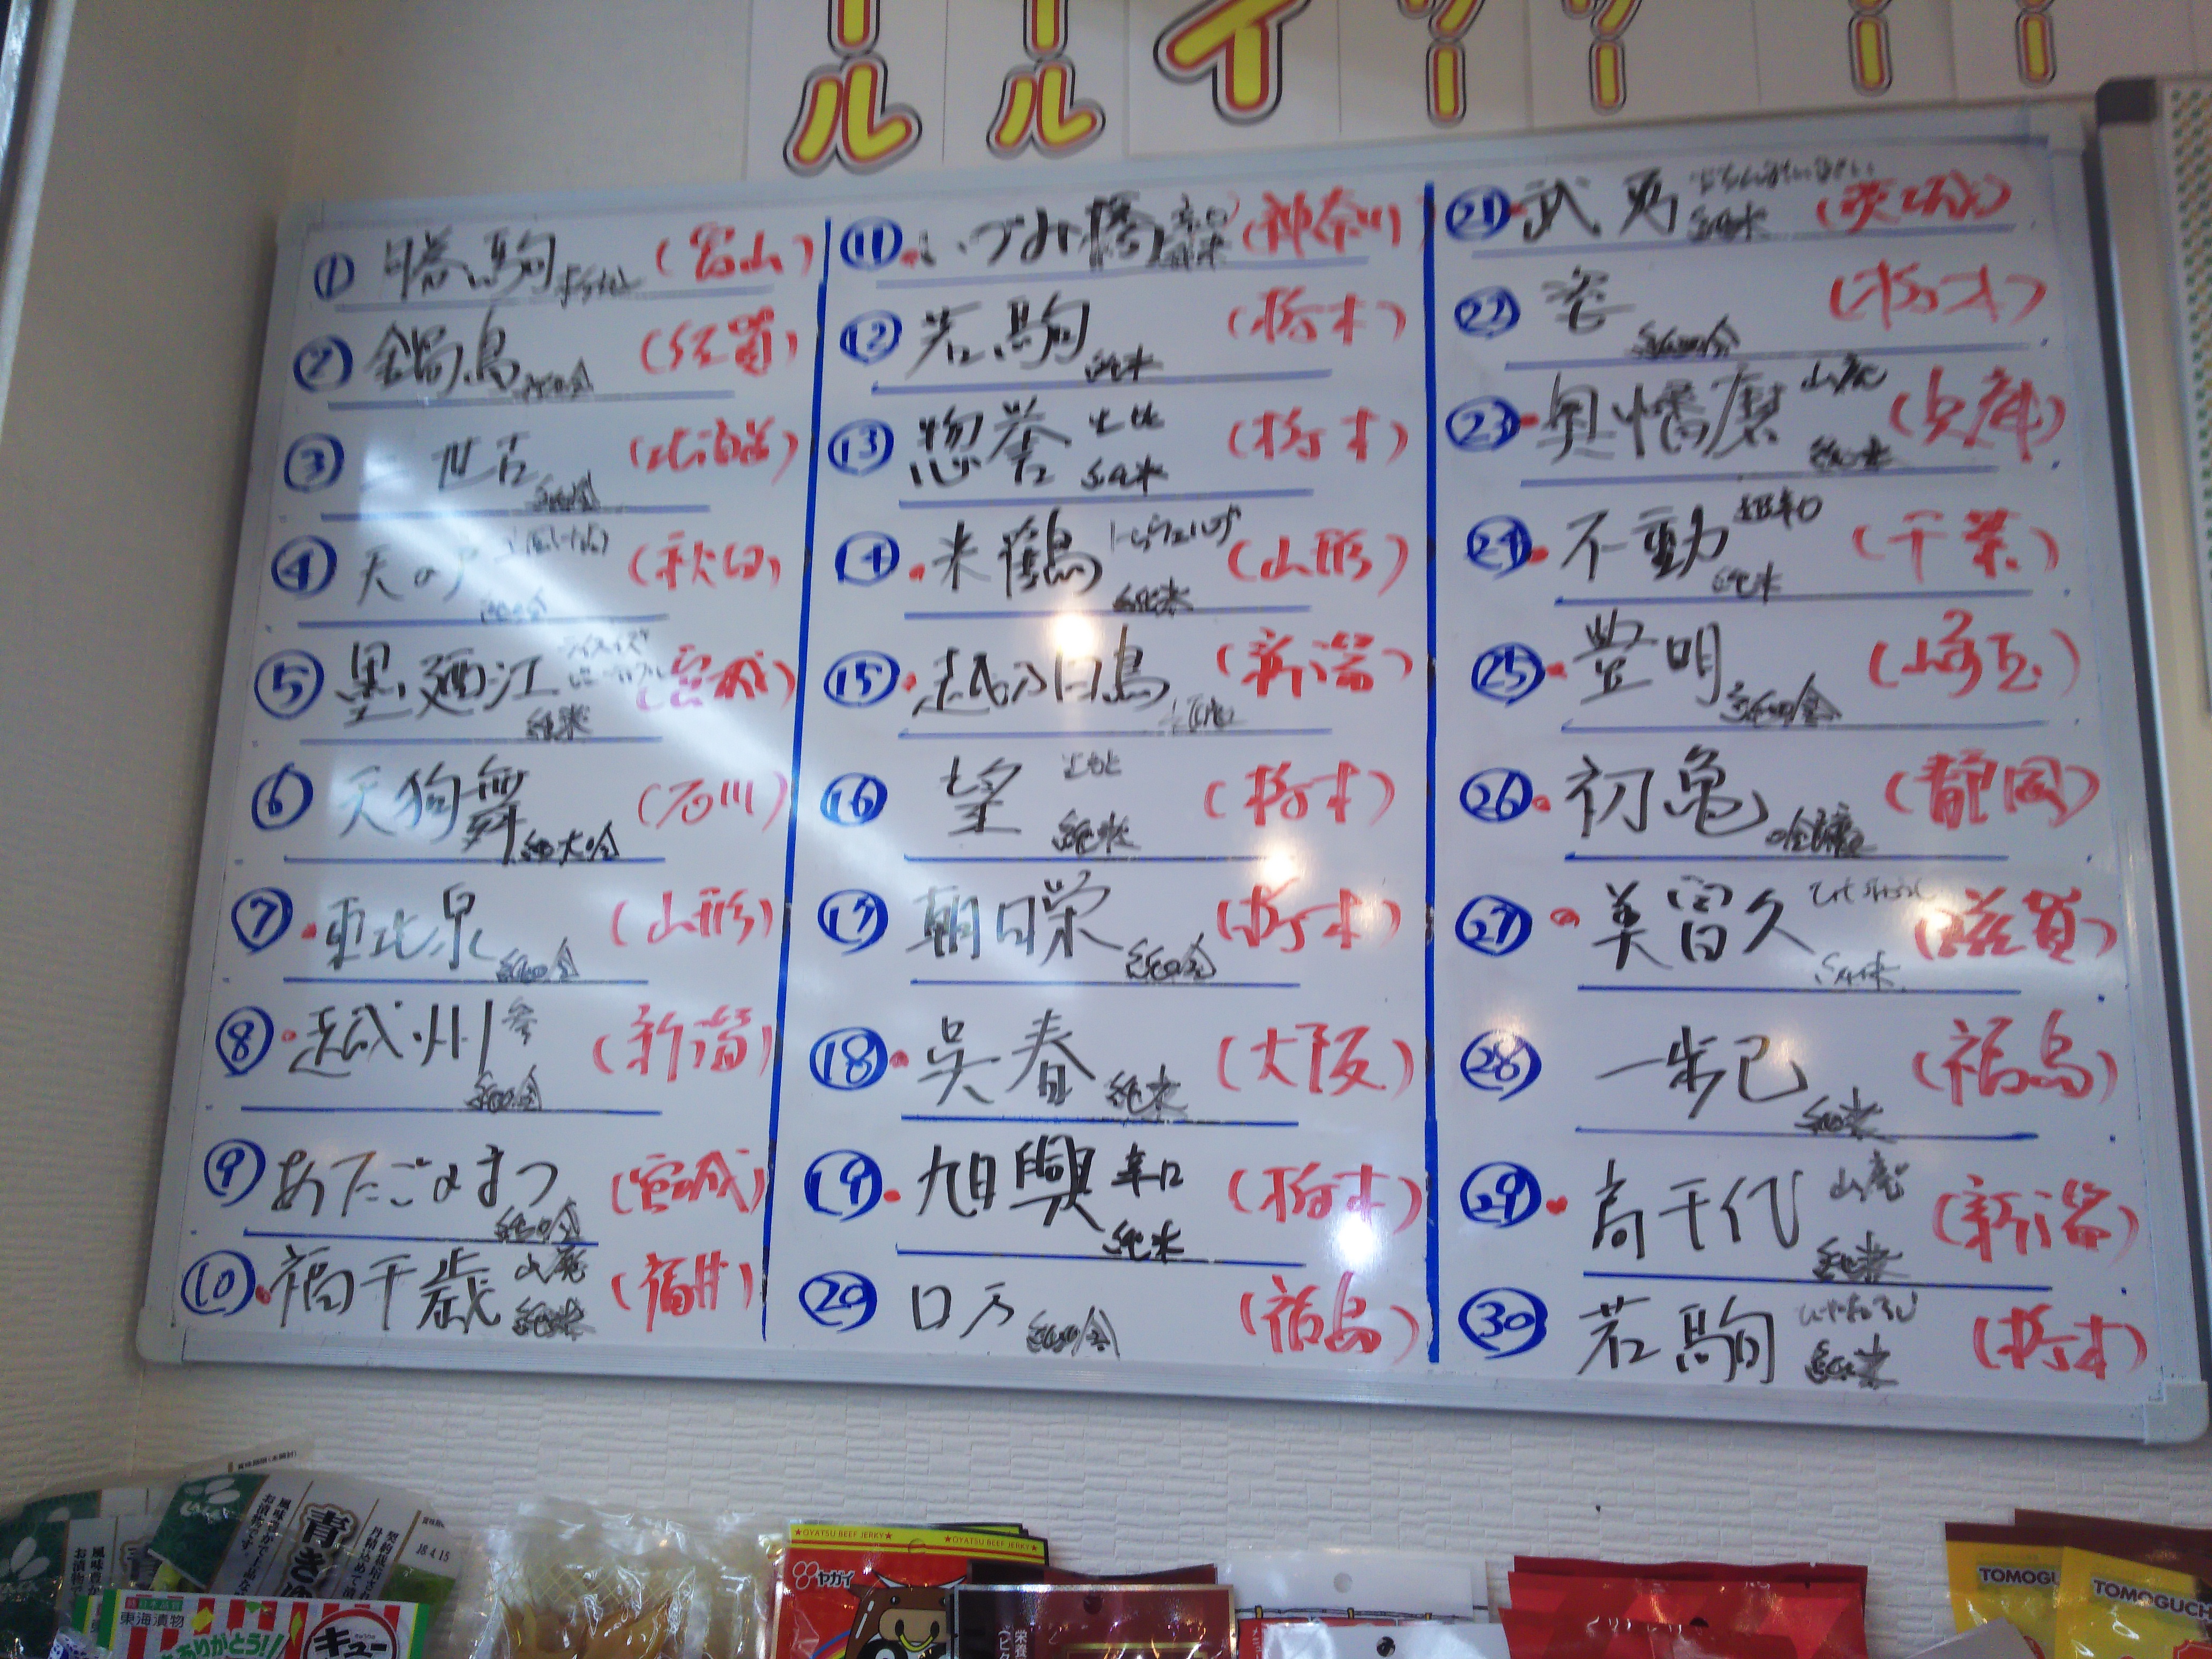 ール
ール
イ
ワー
ワー
ー
ー
① 勝駒 本仕込 (富山)
② 鍋島 純吟 (佐賀)
③ 二世古 純吟 (北海道)
④ 天の戸 純吟 (秋田)
⑤ 墨廼江 純米 (宮城)
⑥ 天狗舞 純大吟 (石川)
⑦ 東北泉 純吟 (山形)
⑧ 越州 参 純吟 (新潟)
⑨ あたごのまつ 純吟 (宮城)
⑩ 福千歳 山廃 純米 (福井)
⑪ いづみ橋 辛口 純米 (神奈川)
⑫ 若駒 純米 (栃木)
⑬ 惣誉 生酛 純米 (栃木)
⑭ 米鶴 純米 (山形)
⑮ 越乃白鳥 (新潟)
⑯ 望 純米 (栃木)
⑰ 朝日栄 純吟 (栃木)
⑱ 呉春 純米 (大阪)
⑲ 旭興 辛口 純米 (栃木)
⑳ ロ万 純吟 (福島)
㉑ 武勇 純米 (茨城)
㉒ 姿 純吟 (栃木)
㉓ 奥播磨 山廃 純米 (兵庫)
㉔ 不動 超辛口 純米 (千葉)
㉕ 豊明 純吟 (埼玉)
㉖ 初亀 吟醸 (静岡)
㉗ 美冨久 純米 (滋賀)
㉘ 一歩己 純米 (福島)
㉙ 高千代 山廃 純米 (新潟)
㉚ 若駒 ひやおろし 純米 (栃木)
18.4.15
東海漬物
ありがとう!!
キュー
★OYATSU BEEF JERKY★
★OYATSU BEEF JERKY★
ヤガイ
TOMOGU
TOMOGUCH